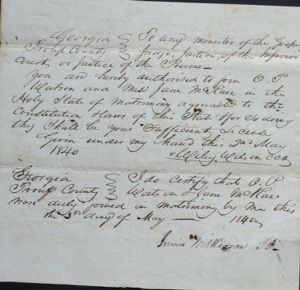 Georgia To any minister of the Gospel
Troup County Judge Justice of the Inferior
Court, or Justice of the Peace
You are hereby authorised to join O. P.
Watson and Miss Jane McRae in the
Holy State of Matrimony agreeable to the
Constitution & laws of this State & for So doing
this Shall be your Sufficient License
Given under my hand this 2nd May
1840 Wiley Wilson CCO
Georgia I do certify that O. P.
Troup County Watson & Jane McRae
were duly joined in matrimony by me this
the 3rd day of May 1840